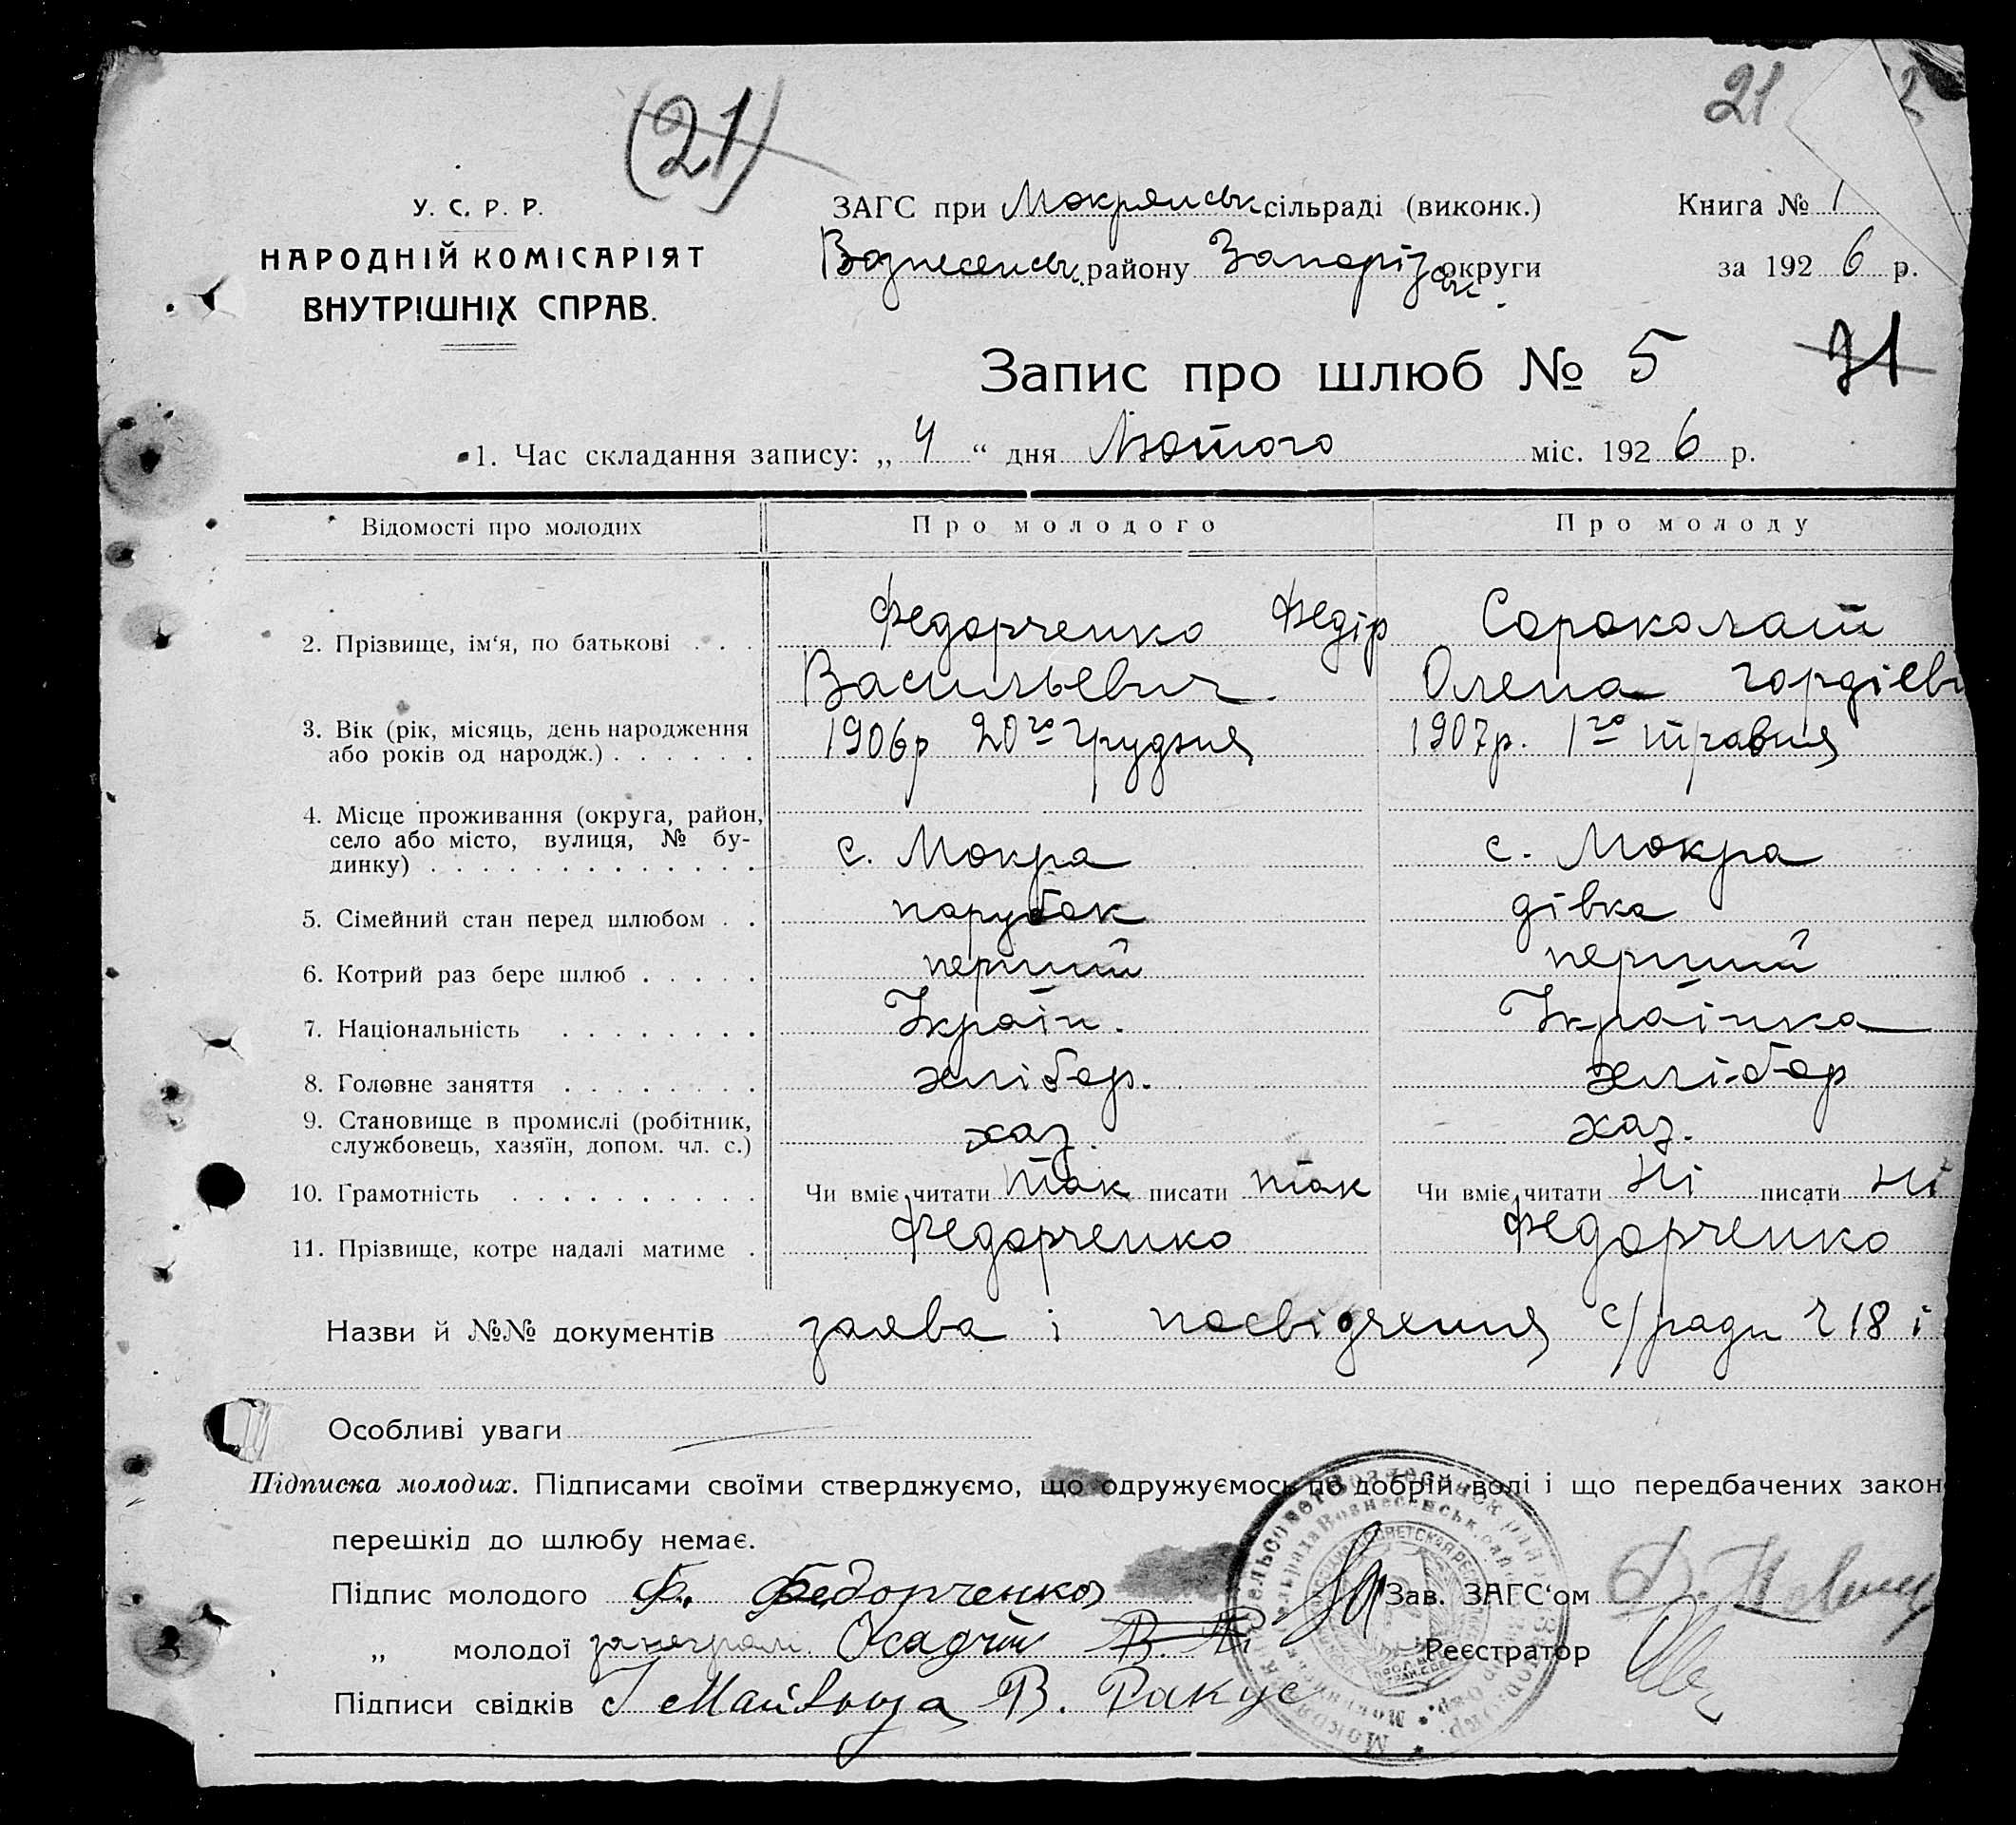 (21)
21
У. С. Р. Р.
НАРОДНІЙ КОМІСАРІЯТ
ВНУТРІШНІХ СПРАВ.
ЗАГС при Мокрянськ сільраді (виконк.)
Книга № 1
Вознесенськ. району Запорізськ. округи
за 1926 р.
Запис про шлюб № 5
21
1. Час складання запису: „ 4 “ дня Лютого міс. 1926 р.
Відомості про молодих Про молодого Про молоду
2. Прізвище, ім‘я, по батькові . . . Федорченко Федір Сороколат
Васильевич. Олена Гордіевн
3. Вік (рік, місяць, день народження
або років од народж.) . . . . . . 1906р 20го Грудня 1907р. 1го травня
4. Місце проживання (округа, район,
село або місто, вулиця, № бу-
динку) . . . . . . . . . . . . . с. Мокра с. Мокра
5. Сімейний стан перед шлюбом . . парубок дівка
6. Котрий раз бере шлюб . . . . . перший перший
7. Національність . . . . . . . . Україн. Українка
8. Головне заняття . . . . . . . . хлібор. хлібор
9. Становище в промислі (робітник,
службовець, хазяїн, допом. чл. с.) хаз. хаз.
10. Грамотність . . . . . . . . . . Чи вміє читати так писати так Чи вміє читати Ні писати Ні
11. Прізвище, котре надалі матиме . Федорченко Федорченко
Назви й №№ документів заява і посвідчення с/ради ч 18 і
Особливі уваги
Підписка молодих. Підписами своїми стверджуємо, що одружуємось по добрій волі і що передбачених закон
перешкід до шлюбу немає.
Підпис молодого Ф. Федорченко
Зав. ЗАГС‘ом
„ молодої за неграм. Осадчий
Реєстратор
Підписи свідків В. Ракус